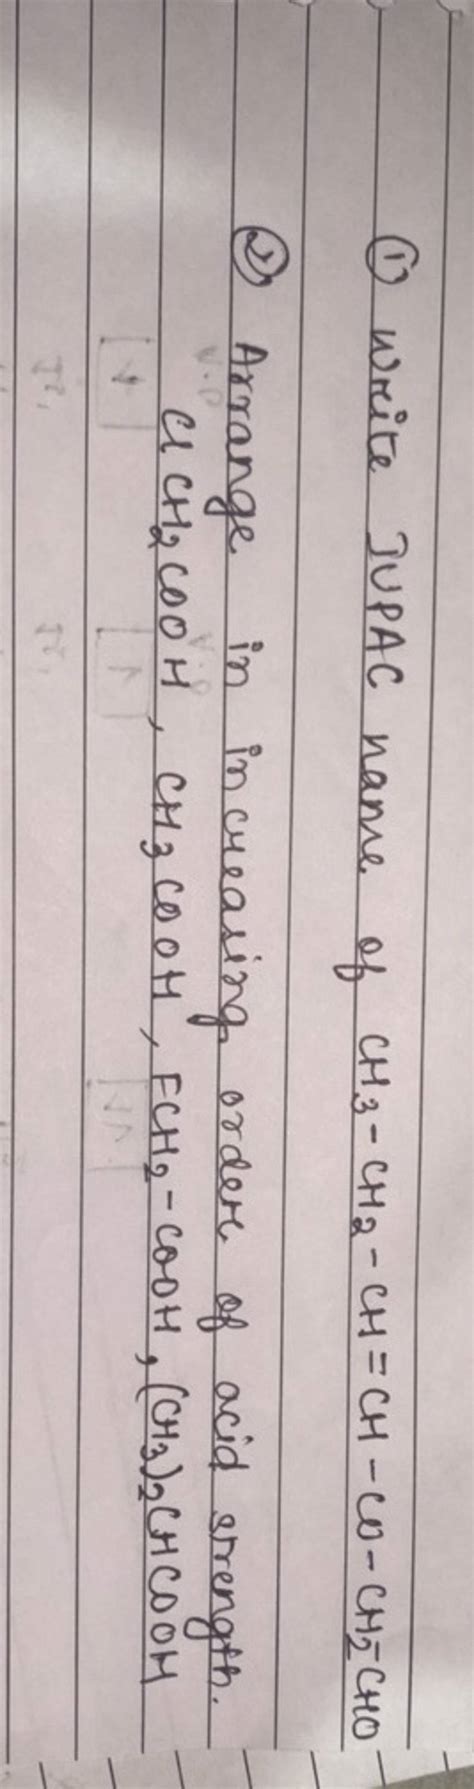 ① Write IUPAC name of CH₃-CH₂-CH=CH-CO-CH₂-CHO
② Arrange in increasing order of acid strength.
ClCH₂COOH, CH₃COOH, FCH₂-COOH, (CH₃)₂CHCOOH